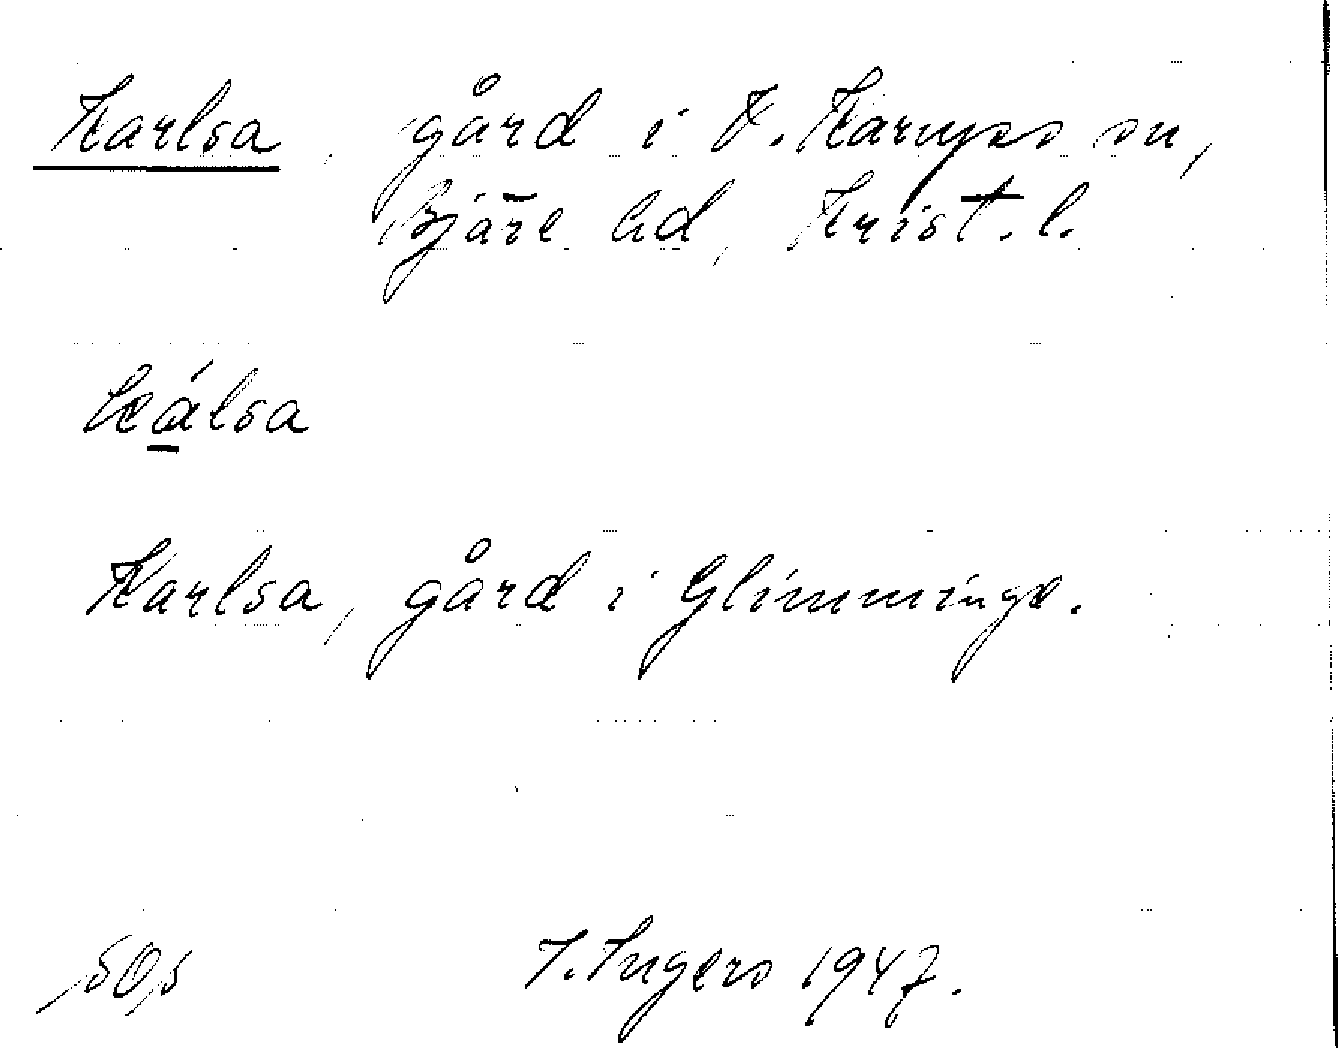 Karlsa, gård i V. Karups sn,
Bjäre hd, Krist. l.
kálsa
Karlsa, gård i Glimminge.
I. Ingers 1947.